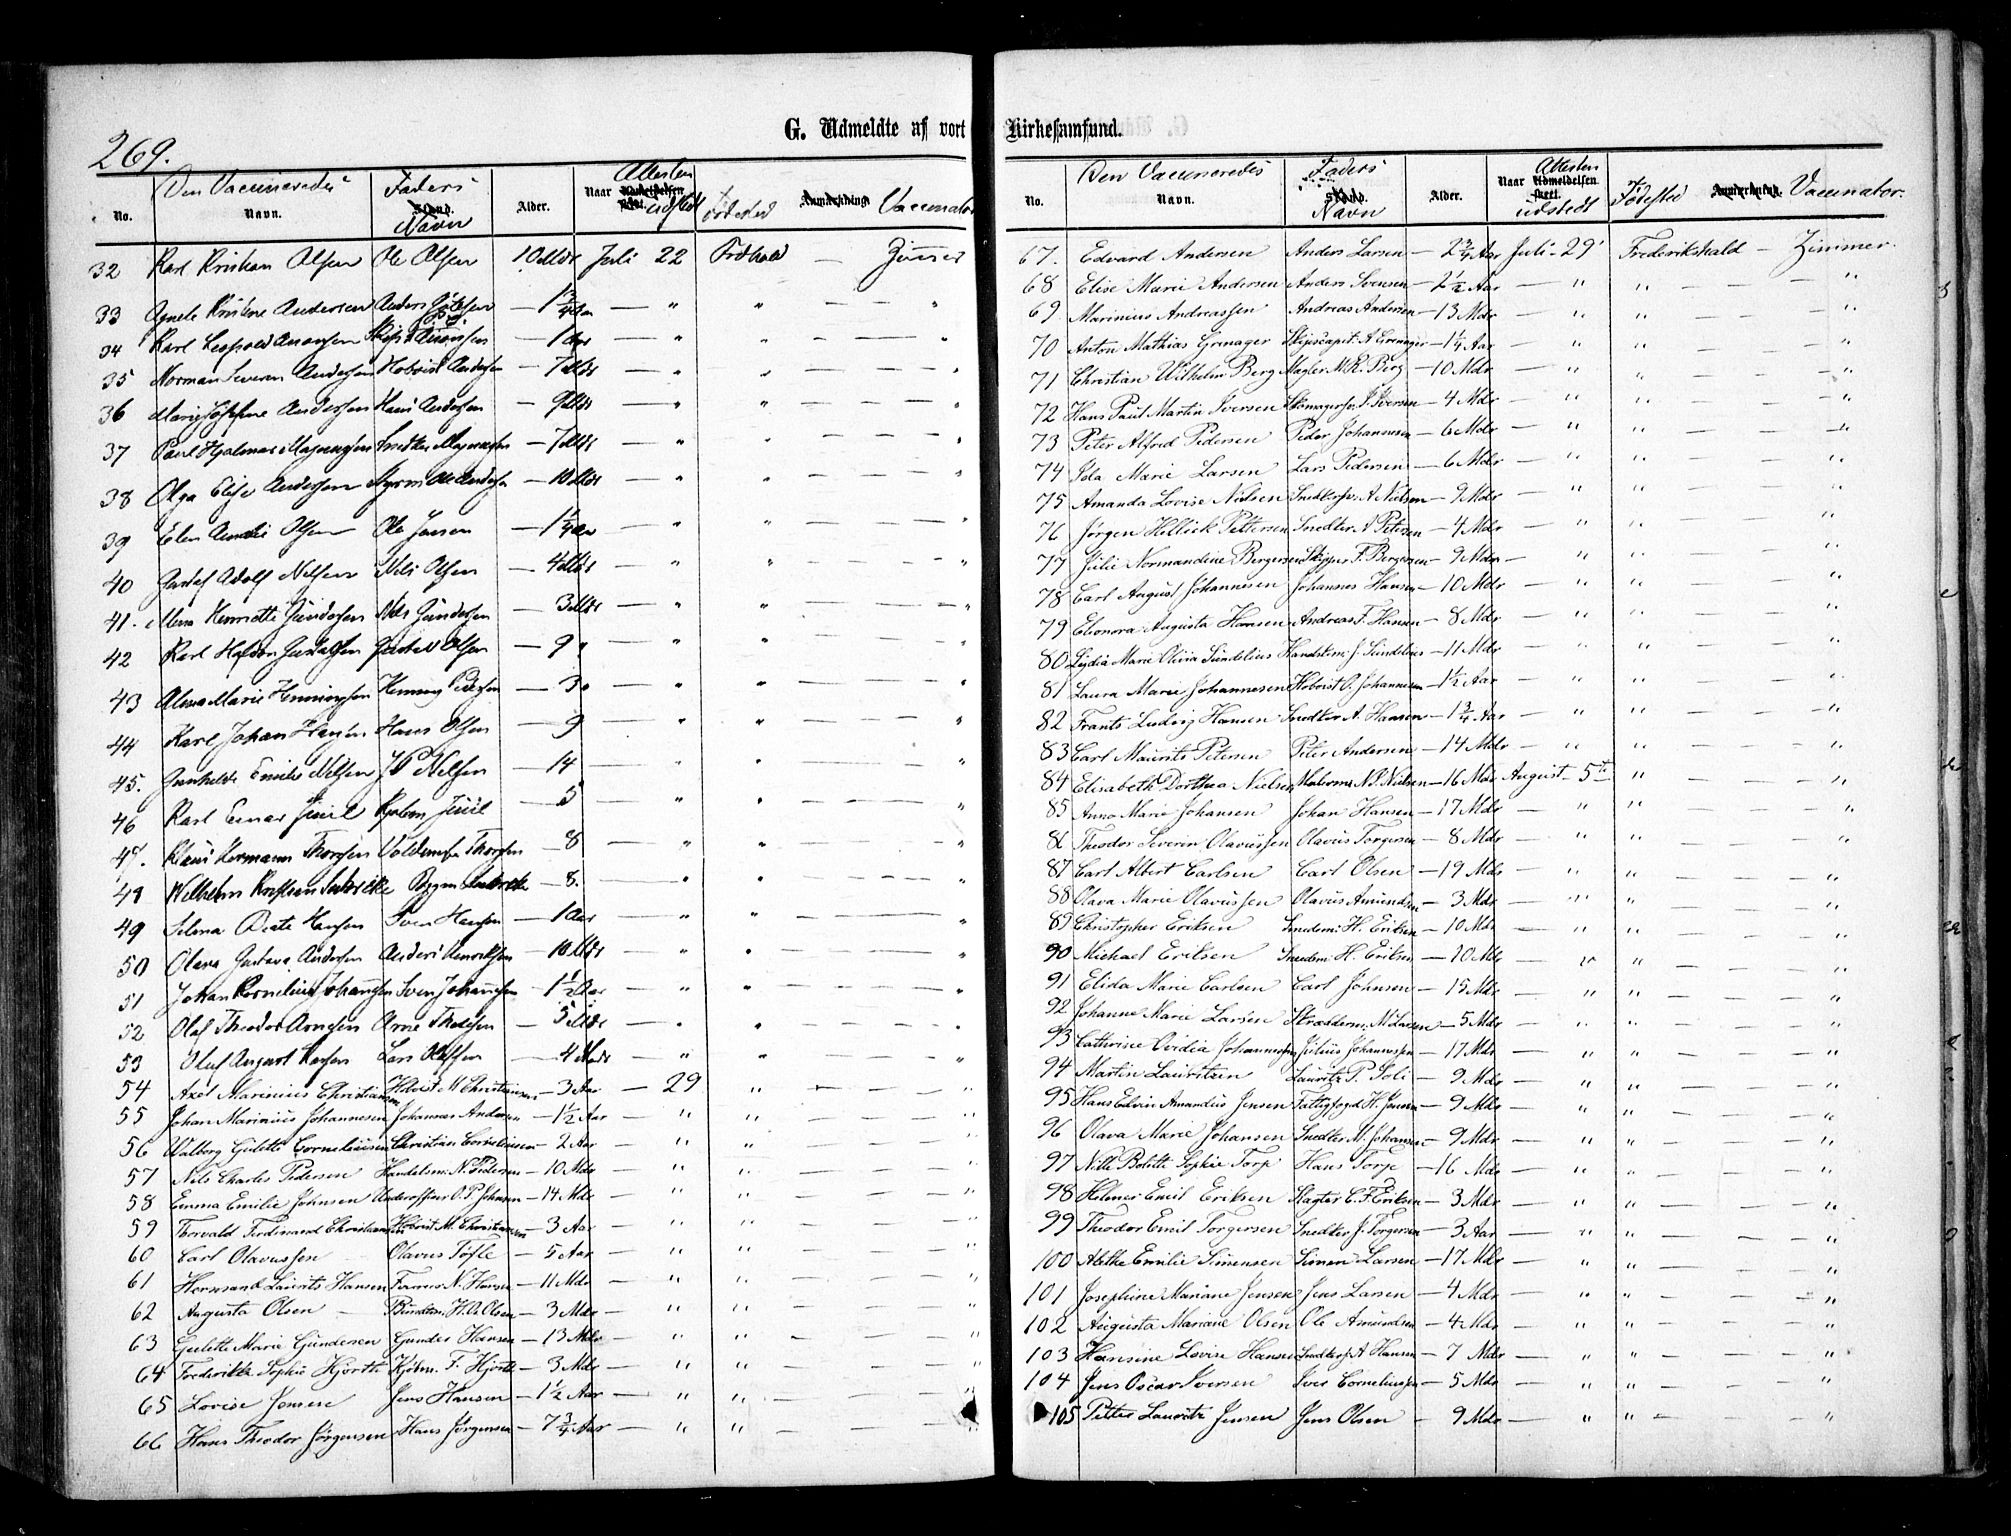 269.
G. Udmeldte af vort
No. Den Vaccineredes Navn. Faders Stand. Navn Alder. Naar Udmeldelsen skeet. Attesten udstedt Fødested Anmærkning. Vaccinator
32 Karl Kristian Olsen Ole Olsen 10 Mdr Juli 22 Frdhald — Zimmer
33 Agnete Kristine Andersen Anders — 1 3/4 Aar — " "
34 Karl Leopold — 1 Aar — " "
35 Norman Severin Andersen Hoboist Andersen — 7 Mdr — " "
36 Marie Josephine Andersen Hans Andersen — 9 Mdr — " "
37 Paul Hjalmar Magnussen Snedker Magnussen — 7 Mdr — " "
38 Olga Elise Andersen Andersen — 10 Mdr — " "
39 Elen Amalie Olsen Ole Jensen — 1 1/4 Aar — " "
40 Gustaf Adolf Nilsen Nils Olsen — 4 Mdr — " "
41. Mina Henriette Gundersen Nils Gundersen — 3 Mdr — " "
42 Karl Gustafsen Gustav Olsen — 9 " — " "
43 Alma Marie Henningsen Henning Pedersen — 3 " — " "
44 Karl Johan Hansen Hans Olsen — 9 — " "
45. Gunhilde Emilie Nilsen Nilsen — 14 — " "
46 Karl Einar Juul Juul — 5 — " "
47. Klaus Hermann Thorsen Thorsen — 8 — " "
48 Wilhelm Kristian — 8. — " "
49 Selma Beate Hansen Sven Hansen — 1 Aar — " "
50 Olava Gustava Andersen Anders Henriksen — 10 Mdr — " "
51 Johan Kornelius Johannsen Sven Johannsen — 1 1/2 Aar — " "
52 Olaf Theodor Arnesen Arne — 5 Mdr — " "
53 Oluf August Larsen Lars Olafsen — 4 Mdr — " "
54 Axel Marinius Christiansen Hoboist M Christiansen — 3 Aar — 29 "
55 Johan Marinius Johannesen Johannes Andersen — 1 1/2 Aar — " "
56 Walborg Gulette Corneliussen Christian Corneliussen — 2 Aar — " "
57 Nils Charles Pedersen Handelsm: N. Pedersen — 10 Mdr — " "
58 Emma Emilie Johnsen Underofficer O. P. Johnsen — 14 Mdr — " "
59 Thorvald Ferdinand Christiansen Hoboist M. Christiansen — 3 Aar — " "
60 Carl Olavussen Olavus Tøfle — 5 Aar — " "
61 Hermand Laurits Hansen N. Hansen — 11 Mdr — " "
62 Augusta Olsen — H. A. Olsen — 3 Mdr — " "
63 Gulette Marie Gundersen Gunder Hansen — 13 Mdr — " "
64 Frederikke Sophie Hjorth Kjøbm. F. Hjorth — 3 Mdr — " "
65 Lovise Jensen Jens Hansen — 1 1/2 Aar — " "
66 Hans Theodor Jørgensen Hans Jørgensen — 7 3/4 Aar — " "
Kirkesamfund.
No. Den Vaccineredes Navn. Faders Stand. Navn Alder. Naar Udmeldelsen skeet. Attesten udstedt Fødested Anmærkning. Vaccinator.
67. Edvard Andersen Anders Larsen — 2 3/4 Aar Juli - 29 Frederikshald — Zimmer.
68 Elise Marie Andersen Anders Svensen — 2 1/2 Aar — " " "
69 Marinius Andreassen Andreas Andersen — 13 Mdr — " " "
70 Anton Mathias Grenager Skipscapit: A Grenager — 1 1/4 Aar — " " "
71 Christian Wilhelm Berg Mægler M. R. Berg — 10 Mdr — " " "
72 Hans Paul Martin Iversen Skomagersv. P. Iversen — 4 Mdr — " " "
73 Peter Alfred Pedersen Peder Johannesen — 6 Mdr — " " "
74 Ida Marie Larsen Lars Pedersen — 6 Mdr — " " "
75 Amanda Lovise Nielsen Snedkersv. A Nielsen — 9 Mdr — " " "
76 Jørgen Pettersen Snedker A Petersen — 4 Mdr — " " "
77 Julie Normandine Bergersen Skipper F. Bergersen — 9 Mdr — " " "
78 Carl August Johannesen Johannes Hansen — 10 Mdr — " " "
79 Eleonora Augusta Hansen Andreas F. Hansen — 8 Mdr — " " "
80 Lydia Marie Olivia Sundelius Handskem: J. Sundelius — 11 Mdr — " " "
81 Laura Marie Johannesen Hoboist O. Johannesen — 1 1/2 Aar — " " "
82 Frants Ludvig Hansen Snedker A. Hansen — 1 3/4 Aar — " " "
83 Carl Maurits Petersen Peter Andersen — 14 Mdr — " " "
84 Elisabeth Dorthea Nielsen N. P. Nielsen — 16 Mdr August - 5te " "
85 Anna Marie Johansen Johan Hansen — 17 Mdr — " " "
86 Theodor Severin Olavussen Olavus Torgersen — 8 Mdr — " " "
87 Carl Albert Carlsen Carl Olsen — 19 Mdr — " " "
88 Olava Marie Olavussen Olavus Amundsen — 3 Mdr — " " "
89 Christopher Eriksen H. Eriksen — 10 Mdr — " " "
90 Michael Eriksen H. Eriksen — 10 Mdr — " " "
91 Elida Marie Carlsen Carl Johnsen — 15 Mdr — " " "
92 Johanne Marie Larsen Skrædderm: M. Larsen — 5 Mdr — " " "
93 Cathrine Ovidia Johannessen Julius Johannessen — 17 Mdr — " " "
94 Martin Lauritzen Lauritz P. Soli — 9 Mdr — " " "
95 Hans Edvin Amandus Jensen Fattigfogd H. Jensen — 9 Mdr — " " "
96 Olava Marie Johansen Snedker M. Johansen — 9 Mdr — " " "
97 Nille Bolette Sophie Torp Hans Torp — 16 Mdr — " " "
98 Helmer Emil Eriksen Slagter C. F. Eriksen — 3 Mdr — " " "
99 Theodor Emil Torgersen Snedker J. Torgersen — 3 Aar — " " "
100 Alethe Emilie Simensen Simen Larsen — 17 Mdr — " " "
101 Josephine Mariane Jensen Jens Larsen — 4 Mdr — " " "
102 Augusta Mariane Olsen Ole Amundsen — 4 Mdr — " " "
103 Hansine Lovise Hansen Snedkersv. A Hansen — 7 Mdr — " " "
104 Jens Oscar Iversen Iver Corneliussen — 5 Mdr — " " "
105 Petter Lauritz Jensen Jens Olsen — 9 Mdr — " " "